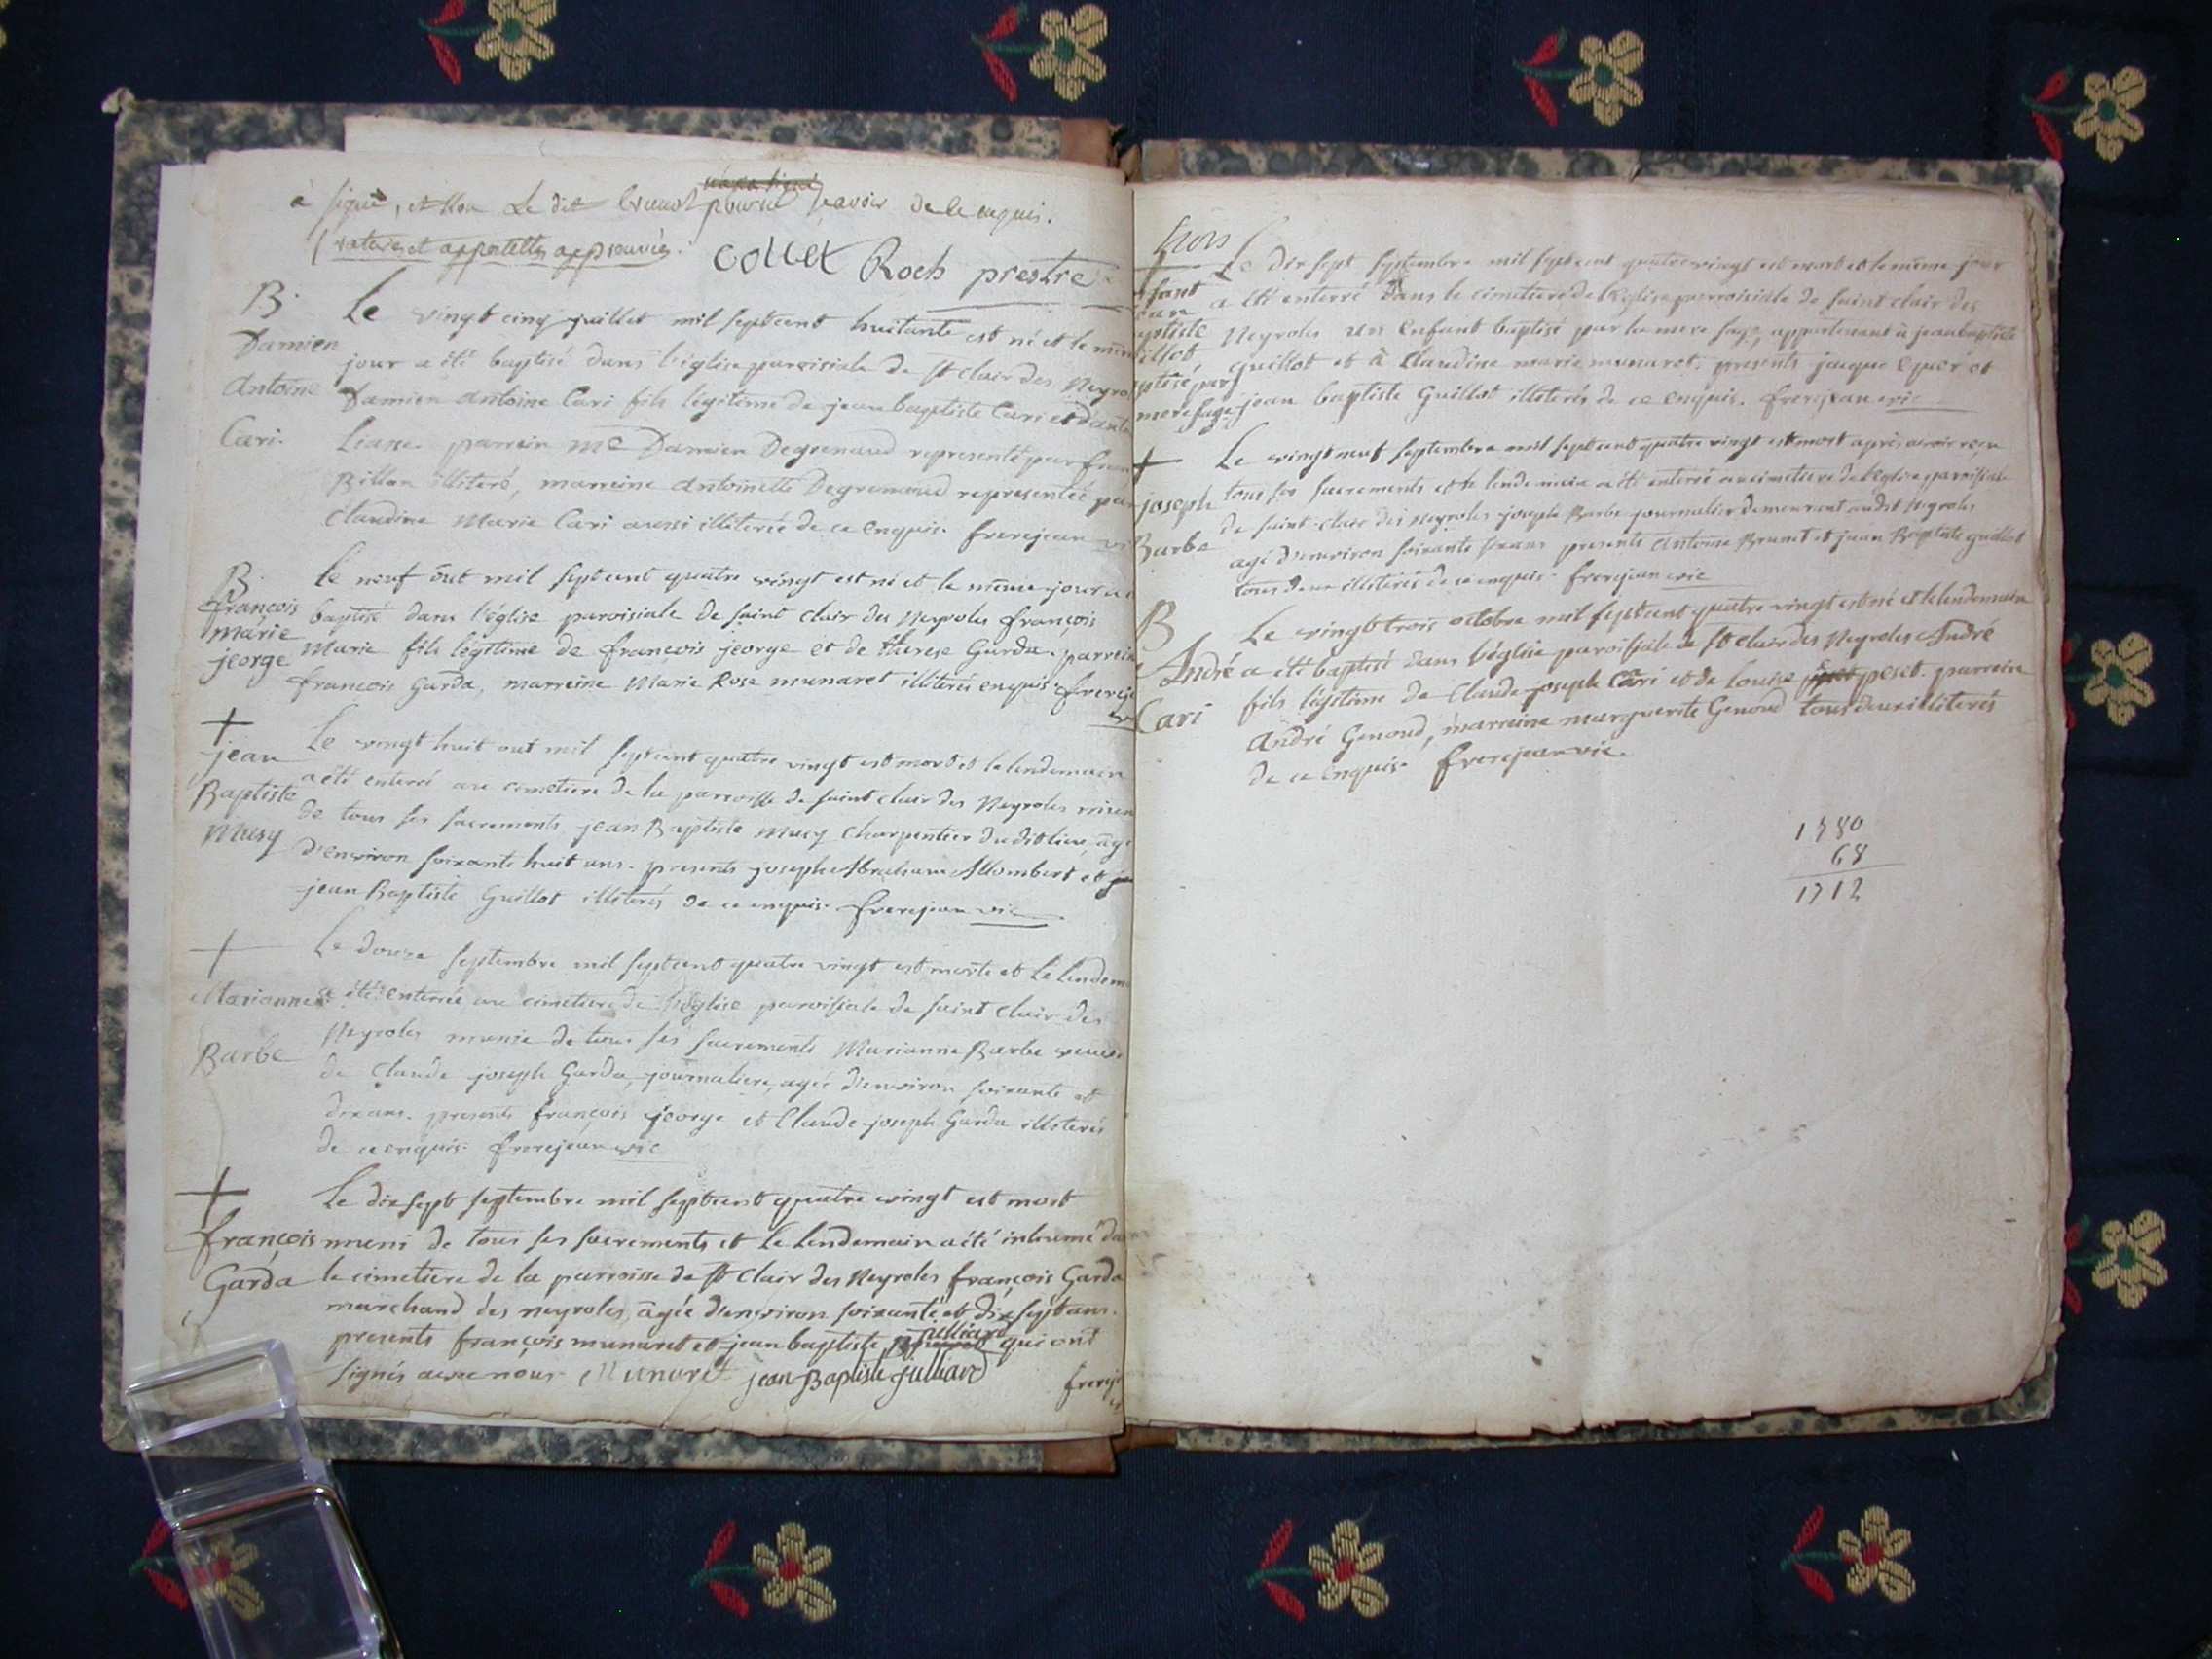 à signé, et non Le dit Brunet pour ne sçavoir de le enquis.
ratures et appostilles approuvées.
collet Roch prestre
B.
Damien
Antoine
Cari.
Le vingt cinq juillet mil septcent huitante est né et le mêm
jour a été baptisé dans l'église paroisiale de st Clair des Neyrol
Damien Antoine Cari fils légitime de jean baptiste Cari et d'ant
Liane. parrein me Damien Degrenaud representé par fran
Billon illiteré, marreine Antoinette Degrenaud representée par
Claudine Marie Cari aussi illiterée de ce enquis. frerejean vi
B.
françois
marie
jeorge
le neuf out mil septcent quatre vingt est né et le même jour a é
baptisé dans l'église paroisiale de saint Clair des Neyroles françois
Marie fils légitime de françois jeorge et de therese Garda. parrein
françois Garda, marreine Marie Rose munaret illiterés enquis. frereje
+
jean
Baptiste
Musy
Le vingt huit out mil septcent quatre vingt est mort et le lendemain
a été enterré au cimetiere de la parroisse de saint Clair des Neyroles muni
de tous ses sacrements jean Baptiste Musy Charpentier du dit lieu, âgé
d'environ soixante huit ans. presents joseph Abraham Allombert et
jean Baptiste Guillot illiterés de ce enquis. frerejean vic
+
Marianne
Barbe
Le douze septembre mil septcent quatre vingt est morte et Le lendem
a été enterrée au cimetiere de l'église paroissiale de saint Clair des
Neyroles munie de tous ses sacrements Marianne Barbe veuve
de Claude joseph Garda, journaliere, agée d'environ soixante et
dix ans. presents françois jeorge et Claude joseph Garda illiterés
de ce enquis. frerejean vic
+
françois
Garda
Le dix sept septembre mil septcent quatre vingt est mort
muni de tous ses sacrements et Le Lendemain a été inhumé da
le cimetiere de la parroisse de st Clair des Neyroles françois Garda
marchand des neyroles, agée d'environ soixante et dix sept ans.
presents françois munaret et jean baptiste julliard qui ont
signés avec nous. Munaret jean Baptiste julliard frereje
trois
fant
ean
aptiste
illot
ptisé par
mere sage
Le dix sept septembre mil septcent quatre vingt est mort et le même jour
a été enterré dans le cimetiere de l'église parroisiale de saint clair des
Neyroles un enfant baptisé par la mere sage, appartenant à jean baptiste
guillot et à Claudine marie munaret. presents jaque et
jean baptiste Guillot illiterés de ce enquis. frerejean vic
+
joseph
Barbe
Le vingt neuf septembre mil septcent quatre vingt est mort après avoir reçu
tous ses sacrements et le lendemain a été enterré au cimetiere de l'église parroisiale
de saint clair des neyroles joseph Barbe journalier demeurant audit Neyroles
agé d'environ soixante ans presents Antoine Brunet et jean Baptiste guillot
tous deux illiterés de ce enquis. frerejean vic
B
André
Cari
Le vingt trois octobre mil septcent quatre vingt est né et le lendemain
a été baptisé dans l'église paroissiale de st clair des Neyroles André
fils légitime de Claude joseph Cari et de Louise peset. parrein
André Genoud, marreine marguerite Genoud tous deux illiterés
de ce enquis. frerejean vic.
1780
68
1712